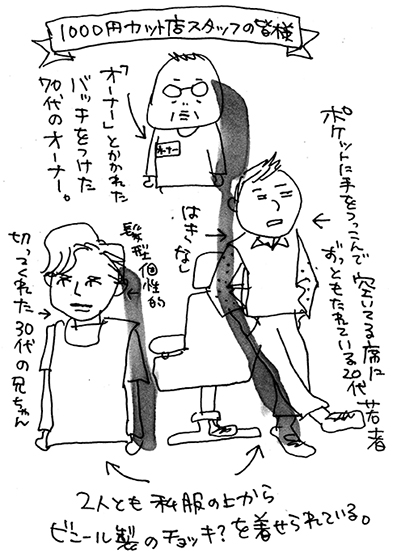 1000円カット店スタッフの皆様
「オーナー」とかかれた
バッヂをつけた
70代のオーナー。
オーナー
ポケットに手をつっこんで
空いてる席に
ずっともたれている20代若者
はきなし
髪型個性的
切ってくれた30代の兄ちゃん
2人とも私服の上から
ビニール製のチョッキ?を着せられている。